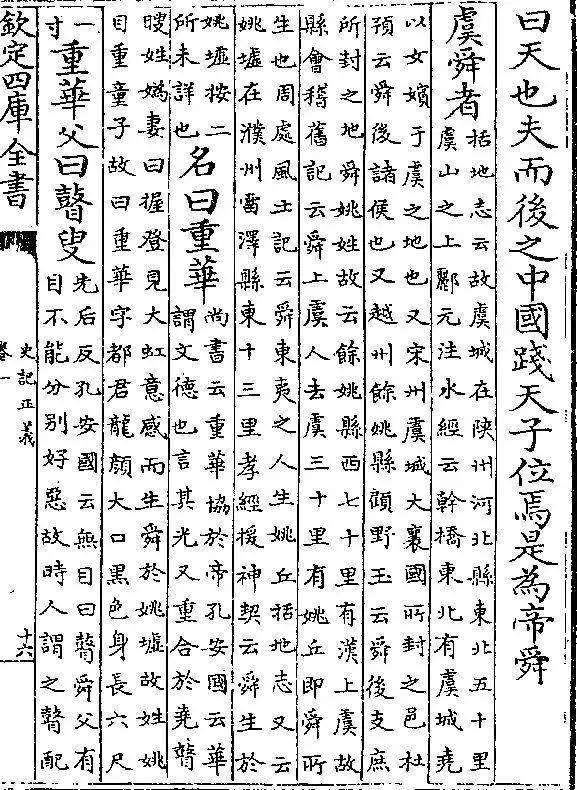 曰天也夫而後之中國踐天子位焉是為帝舜
虞舜者
括地志云故虞城在陜州河北縣東北五十里
虞山之上酈元注水經云幹橋東北有虞城堯
以女嬪于虞之地也又宋州虞城大襄國所封之邑杜
預云舜後諸侯也又越州餘姚縣顧野王云舜後支庶
所封之地舜姚姓故云餘姚縣西七十里有漢上虞故
縣會稽舊記云舜上虞人去虞三十里有姚丘即舜所
生也周處風土記云舜東夷之人生姚丘括地志又云
姚墟在濮州雷澤縣東十三里孝經援神契云舜生於
姚墟按二
所未詳也
名曰重華
尚書云重華協於帝孔安國云華
謂文德也言其光又重合於堯瞽
瞍姓媯妻曰握登見大虹意感而生舜於姚墟故姓姚
目重童子故曰重華字都君龍顏大口黑色身長六尺
一
寸
重華父曰瞽叟
先后反孔安國云無目曰瞽舜父有
目不能分別好惡故時人謂之瞽配
欽定四庫全書
史記正義
卷一
十六